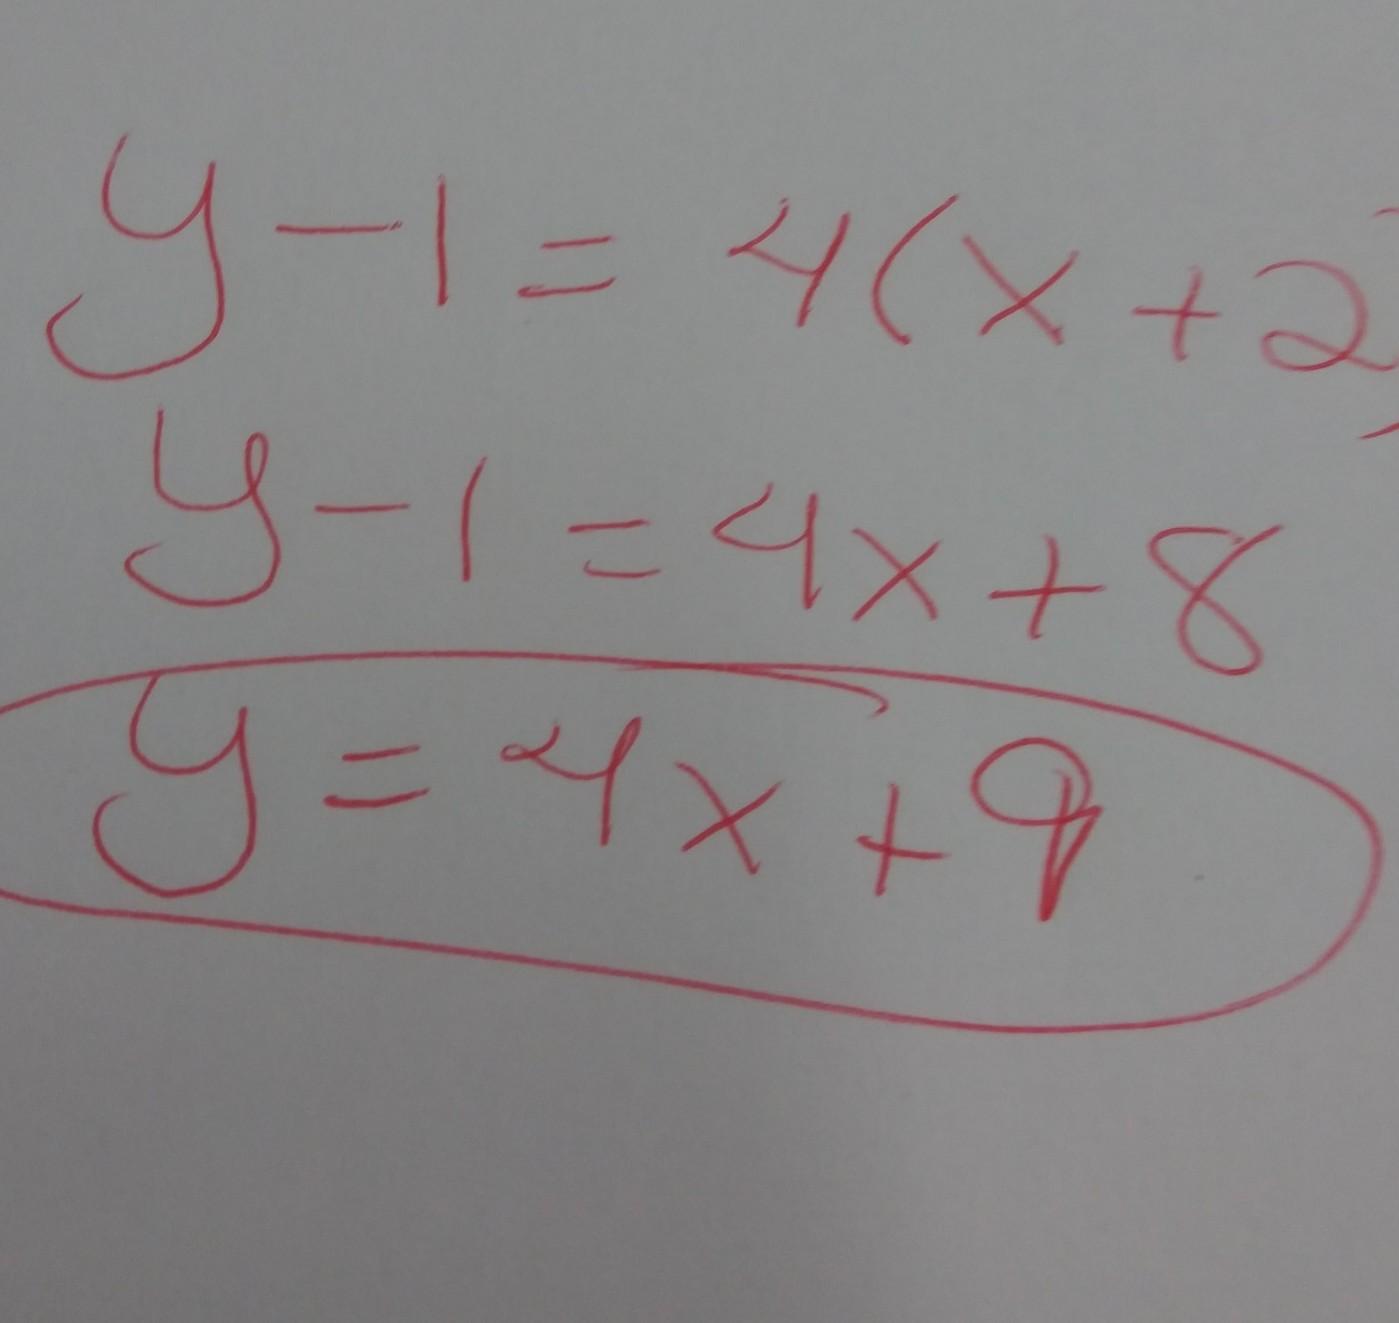 y - 1 = 4(x + 2)
y - 1 = 4x + 8
y = 4x + 9